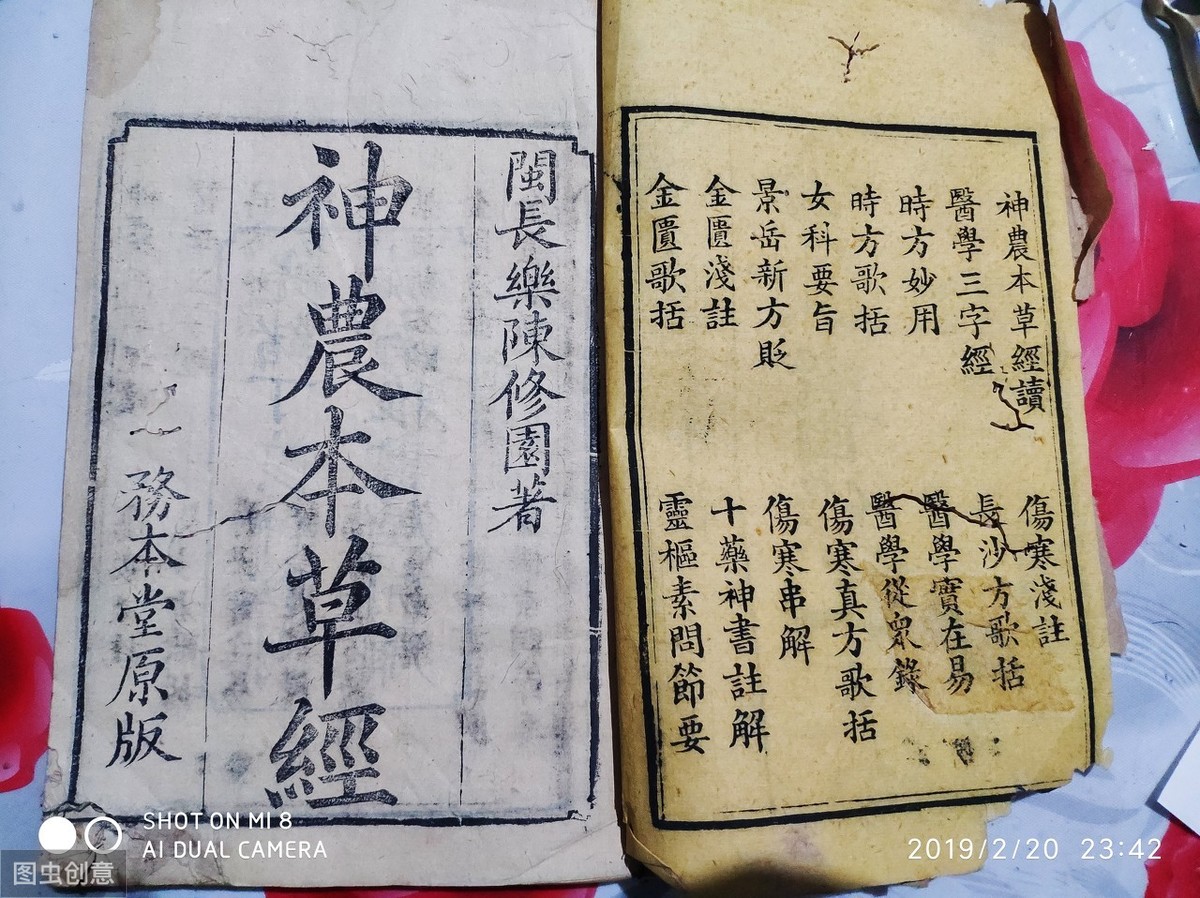 神農本草經讀
醫學三字經
時方妙用
時方歌括
女科要旨
景岳新方貶
金匱淺註
金匱歌括
傷寒淺註
長沙方歌括
醫學實在易
醫學從眾錄
傷寒真方歌括
傷寒串解
十藥神書註解
靈樞素問節要
閩長樂陳修園著
神農本草經
務本堂原版
SHOT ON MI 8
AI DUAL CAMERA
2019/2/20 23:42
图虫创意